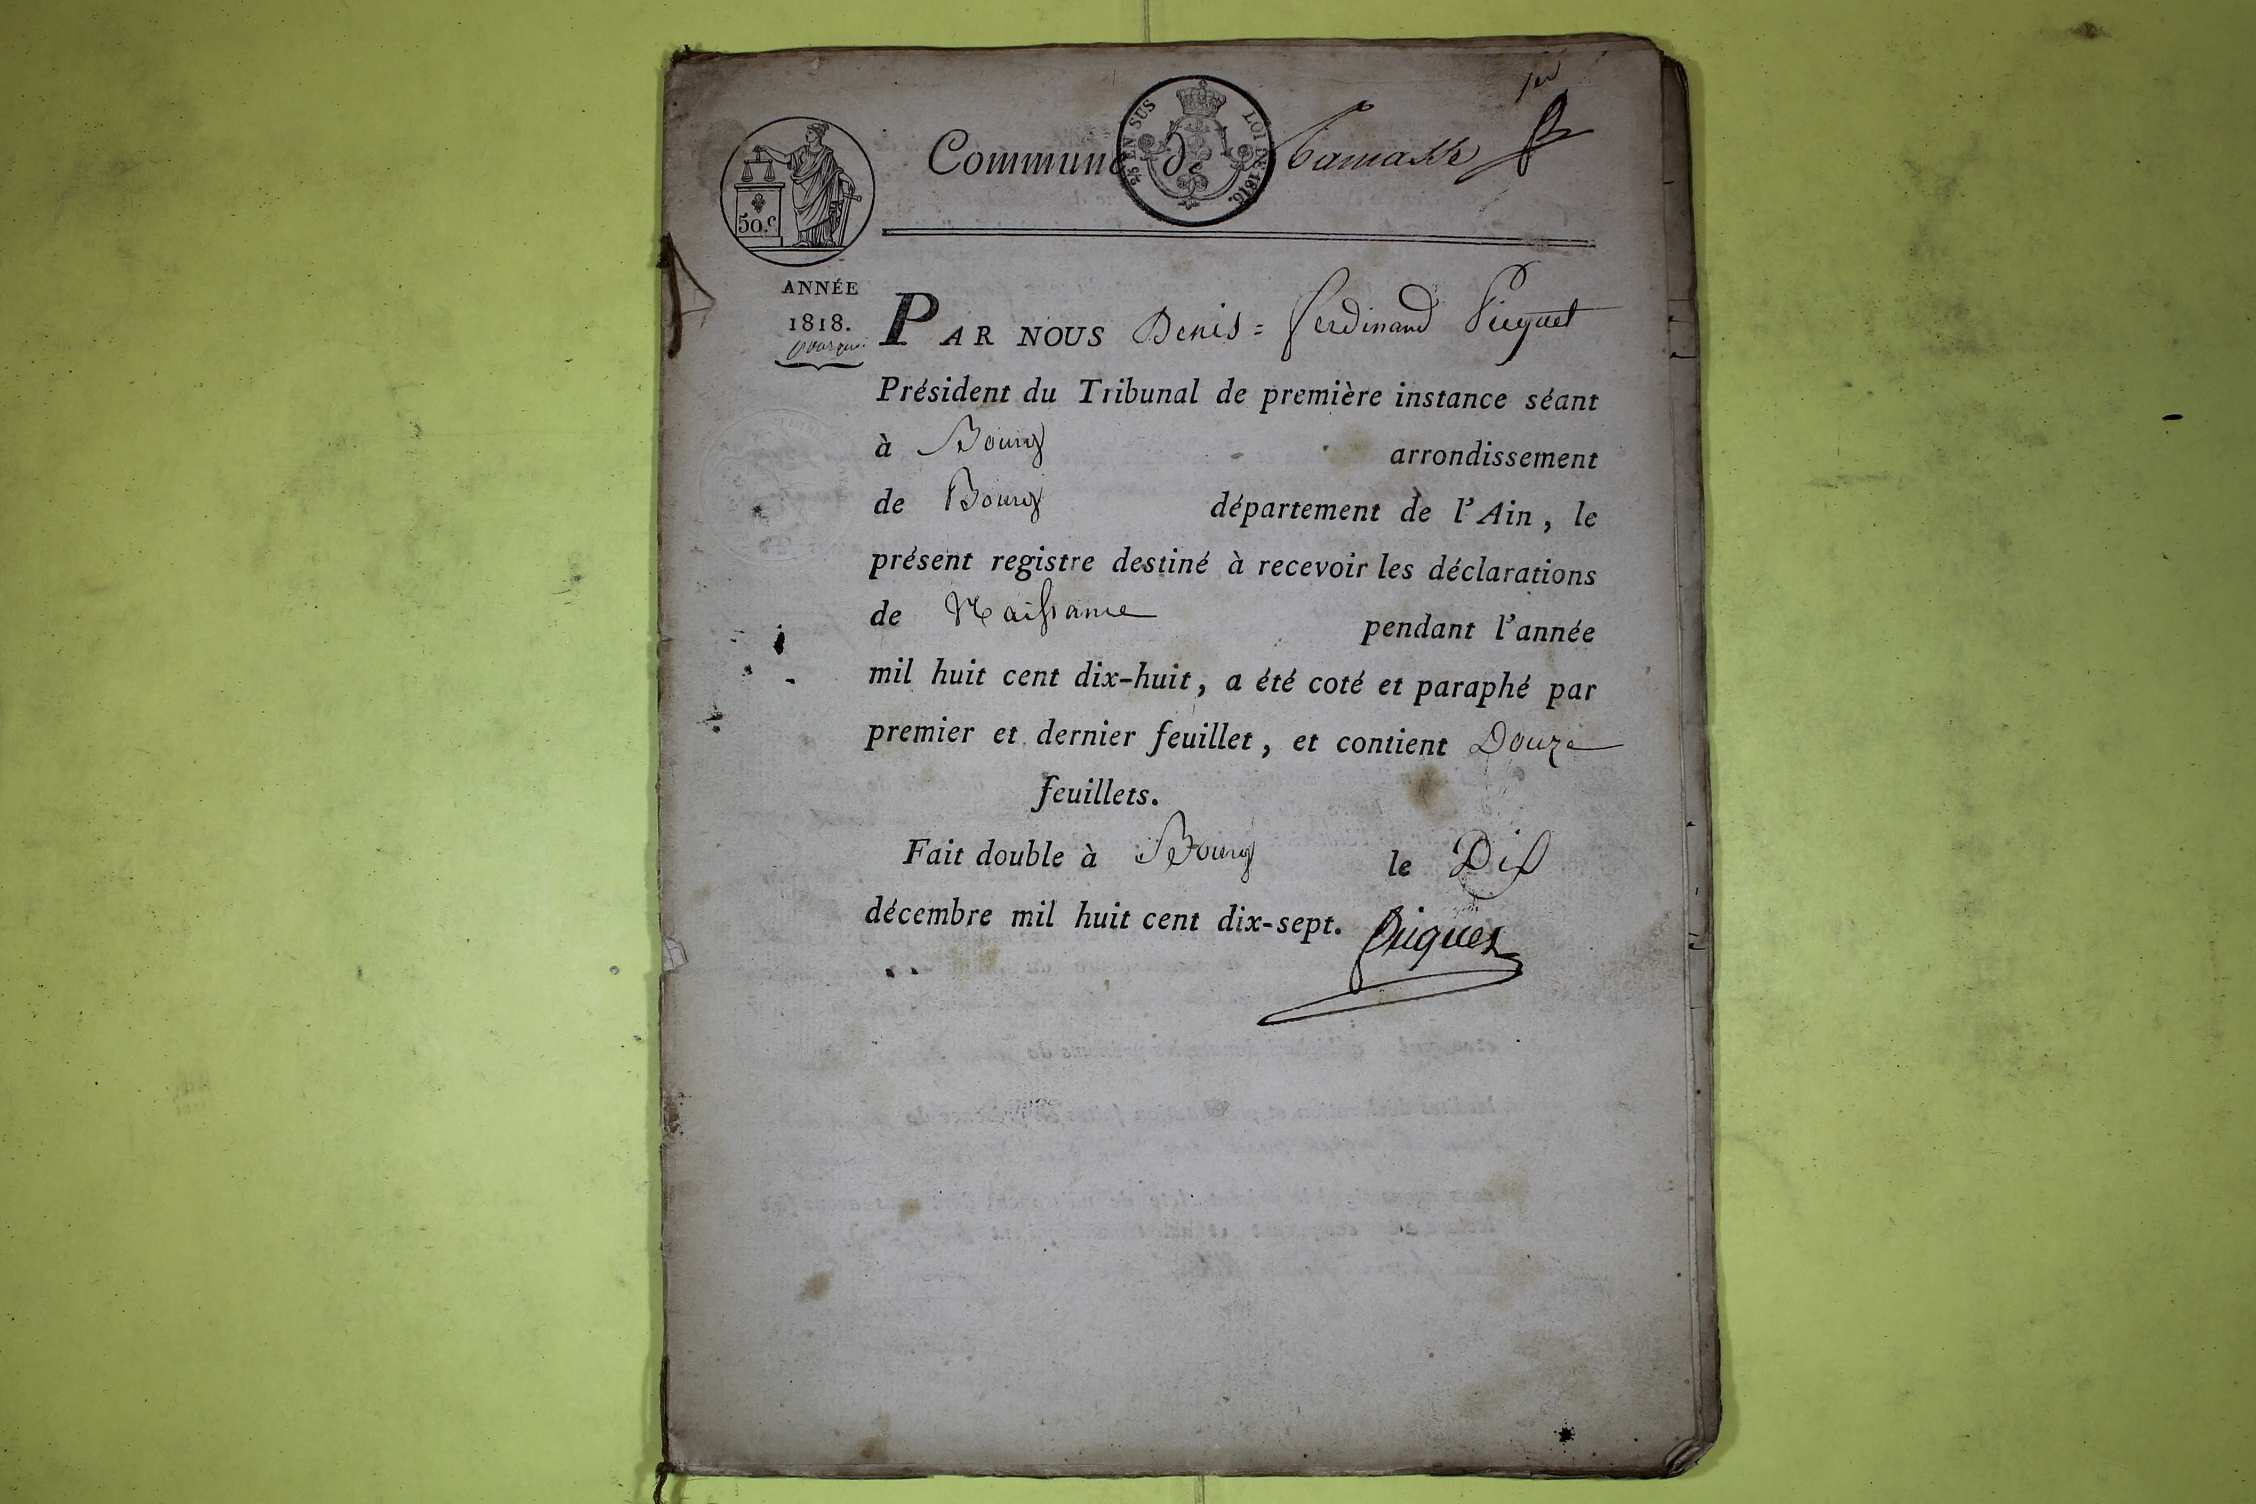 1er
Commune de Ramasse
25 EN SUS LOI DE 1816.
50.C
ANNÉE
1818.
PAR NOUS Denis = Ferdinand Piquet
Président du Tribunal de première instance séant
à Bourg arrondissement
de Bourg département de l'Ain, le
présent registre destiné à recevoir les déclarations
de Naissance pendant l'année
mil huit cent dix-huit, a été coté et paraphé par
premier et dernier feuillet, et contient Douze
feuillets.
Fait double à Bourg le Dix
décembre mil huit cent dix-sept. Piquet